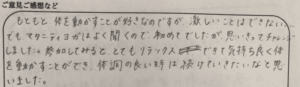 ご意見ご感想など
もともと体を動かすことが好きなのですが、激しいことはできない。
でもマタニティヨガはよく聞くので、初めてでしたが、思いきってチャレンジ
しました。参加してみると、とてもリラックスできて気持ち良く体
を動かすことができ、体調の良い時は続けていきたいなと思
いました。